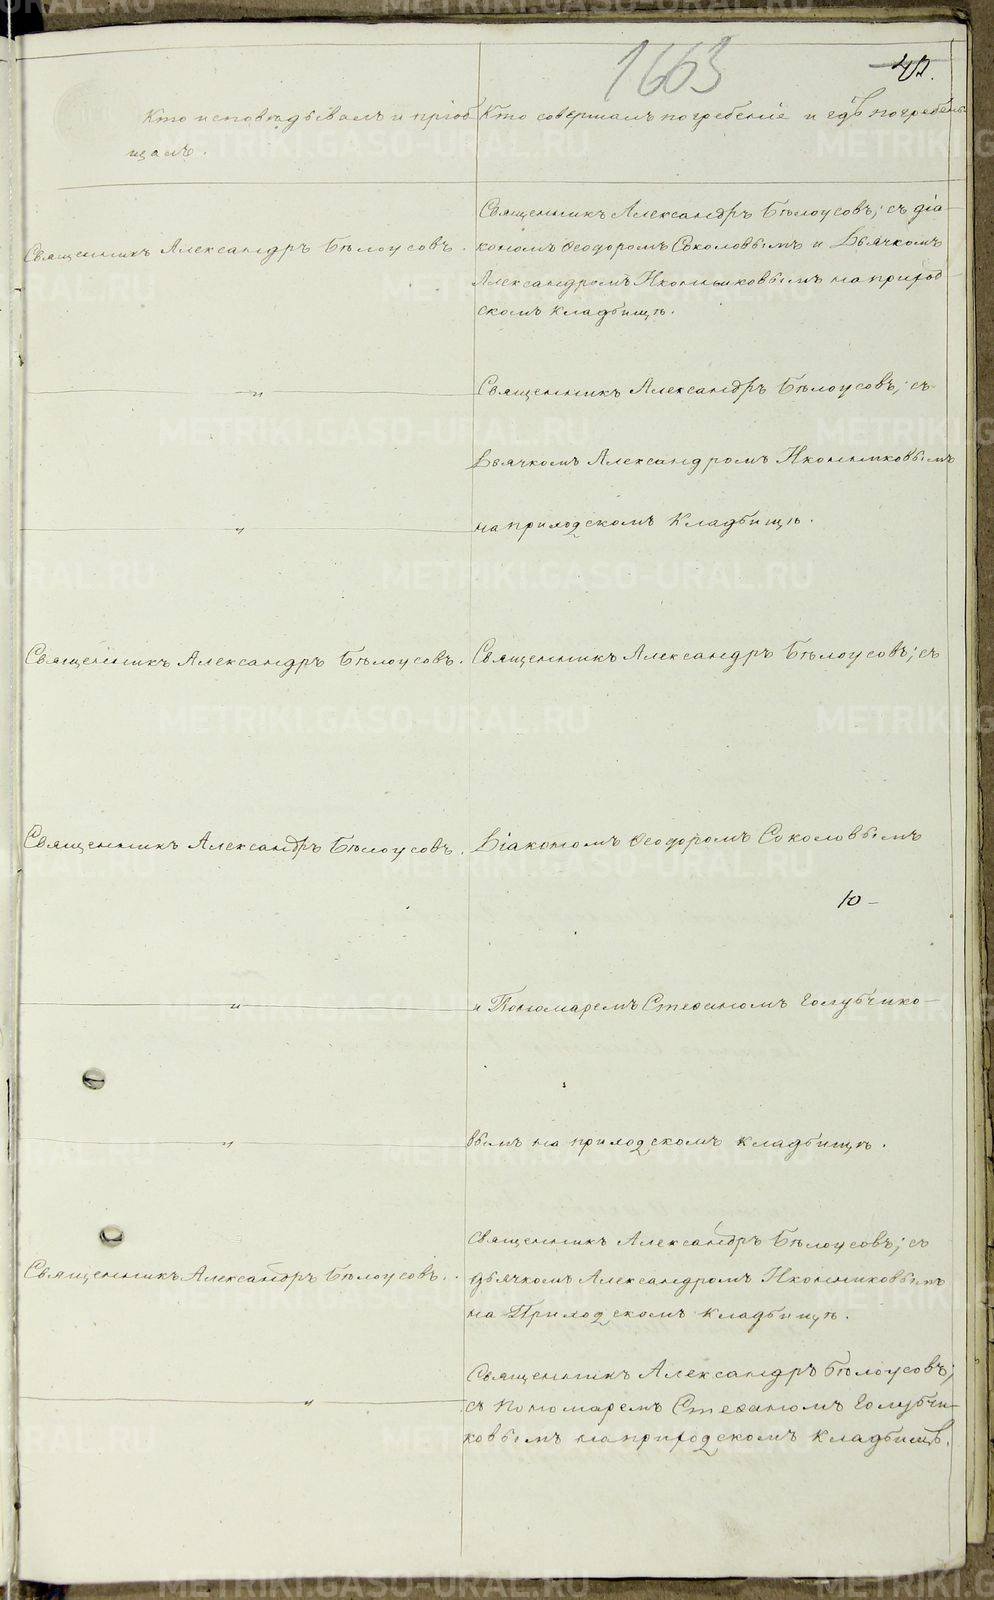 1663
42.
Кто исповѣдывалъ и пріоб
щалъ.
Кто совершалъ погребеніе и гдѣ погребены
Священникъ Александръ Бѣлоусовъ.
Священникъ Александръ Бѣлоусовъ; съ діа-
кономъ Ѳеодоромъ Соколовымъ и Дьячкомъ
Александромъ Иконниковымъ на приход
скомъ кладбищѣ.
— „ —
Священникъ Александръ Бѣлоусовъ; съ
Дьячкомъ Александромъ Иконниковымъ
— „ —
на приходскомъ Кладбищѣ.
Священникъ Александръ Бѣлоусовъ.
Священникъ Александръ Бѣлоусовъ; съ
Священникъ Александръ Бѣлоусовъ.
Діакономъ Ѳеодоромъ Соколовымъ
10 –
— „ —
и Пономаремъ Стефаномъ Голубчико-
— „ —
вымъ на приходскомъ кладбищѣ.
Священникъ Александръ Бѣлоусовъ.
Священникъ Александръ Бѣлоусовъ; съ
дьячкомъ Александромъ Иконниковымъ
на Приходскомъ кладбищѣ.
— „ —
Священникъ Александръ Бѣлоусовъ;
съ пономаремъ Стефаномъ Голубчи-
ковымъ на приходскомъ кладбищѣ.
METRIKI.GASO-URAL.RU